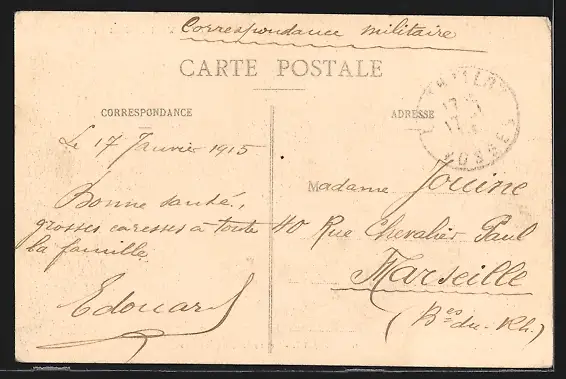 Correspondance militaire
CARTE POSTALE
CORRESPONDANCE
ADRESSE
Le 17 Janvier 1915
Bonne santé,
grosses caresses à toute
la famille.
Edouard
Madame Jouine
40 Rue Chevalier Paul
Marseille
(Bes du. Rh.)
17
VOSGES